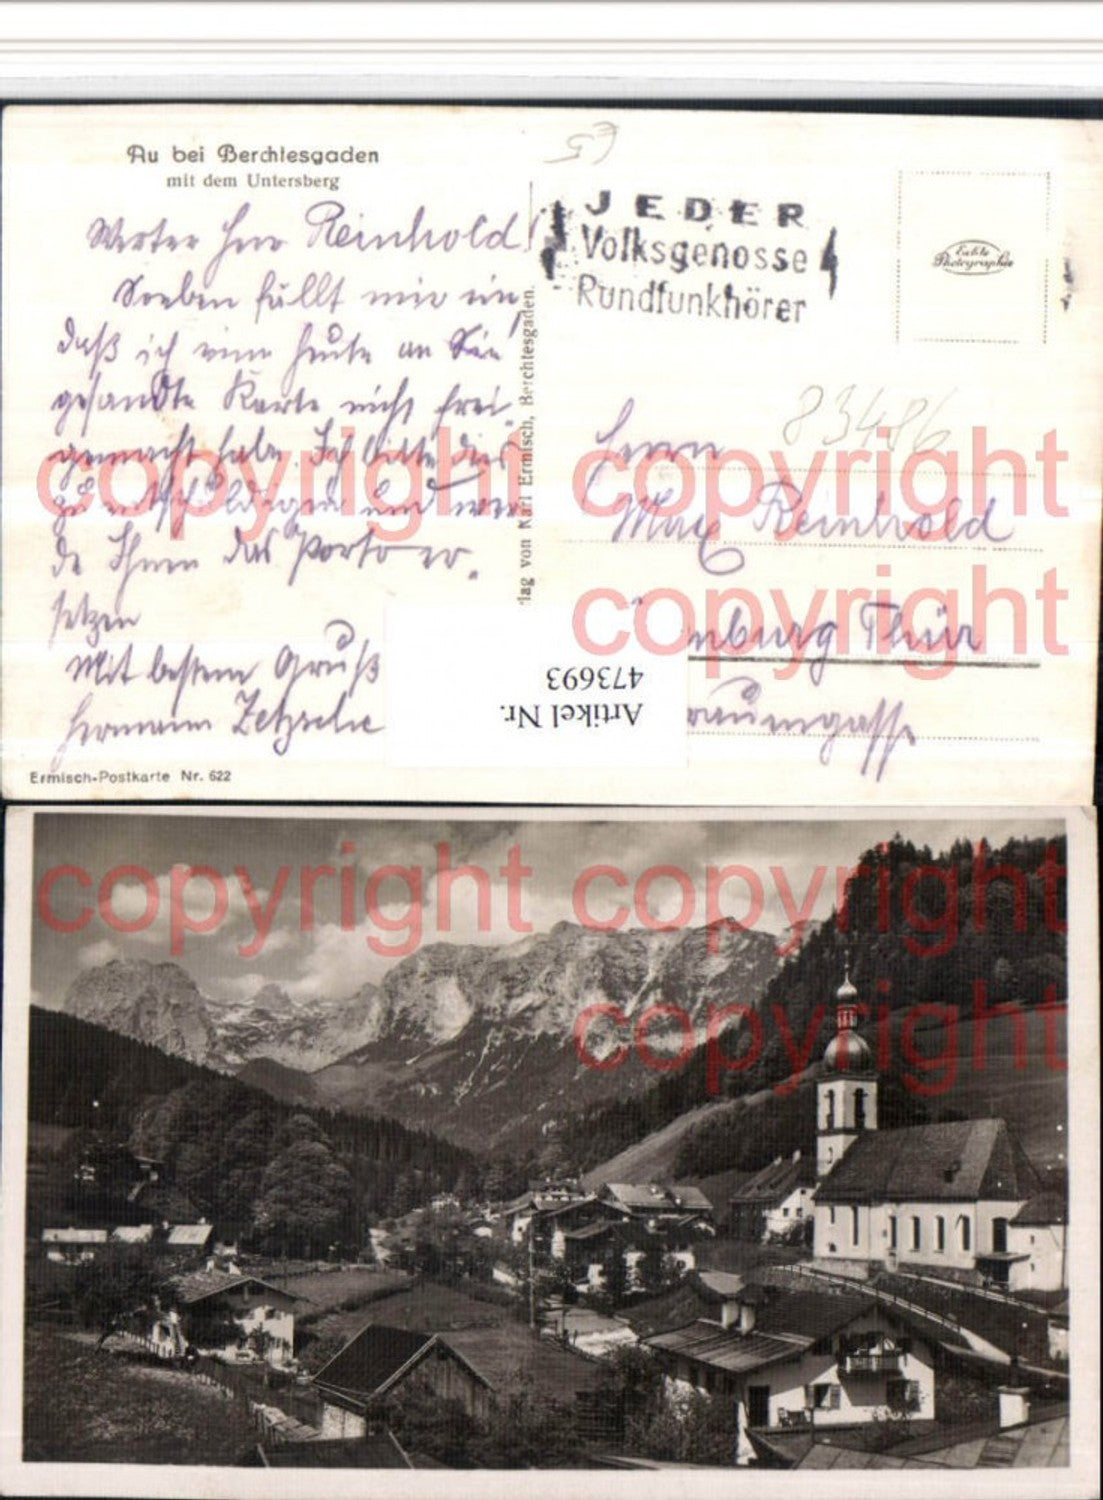 Au bei Berchtesgaden
mit dem Untersberg
Werter Herr Reinhold!
Soeben fällt mir ein,
daß ich eine heute an Sie
gesandte Karte nicht frei-
gemacht habe. Ich bitte dies
zu entschuldigen und wer
de Ihnen das Porto er-
setzen
Mit bestem Gruß
Hermann Zetzsche
Ermisch-Postkarte Nr. 622
lag von Karl Ermisch, Berchtesgaden.
€5
JEDER
Volksgenosse
Rundfunkhörer
Echte
Photographie
83486
Herrn
Max Reinhold
nburg Thür
raumgasse
Artikel Nr.
473693
copyright copyright
copyright
copyright copyright
copyright